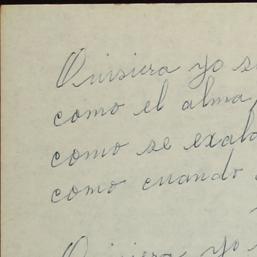 Quisiera yo s
como el alma
como se exala
como cuando
Quisiera yo